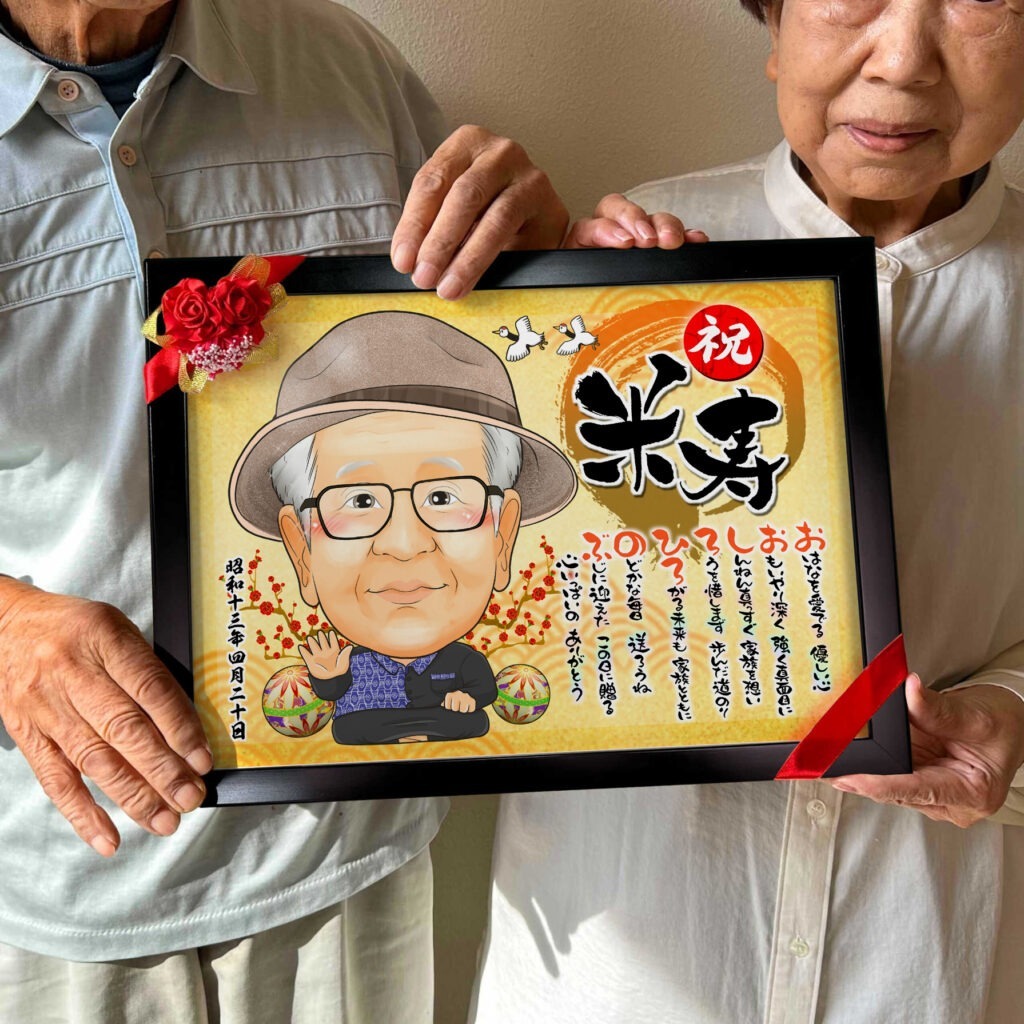 祝
米寿
おはなを愛でる 優しい心
おもいやり深く 強く真面目に
しんねん真っすぐ 家族を想い
ろうを惜します 歩んだ道のり
ひろがる未来も 家族とともに
のどかな毎日 送ろうね
ぶじに迎えた この日に贈る
心いっぱいの ありがとう
昭和十三年四月二十日